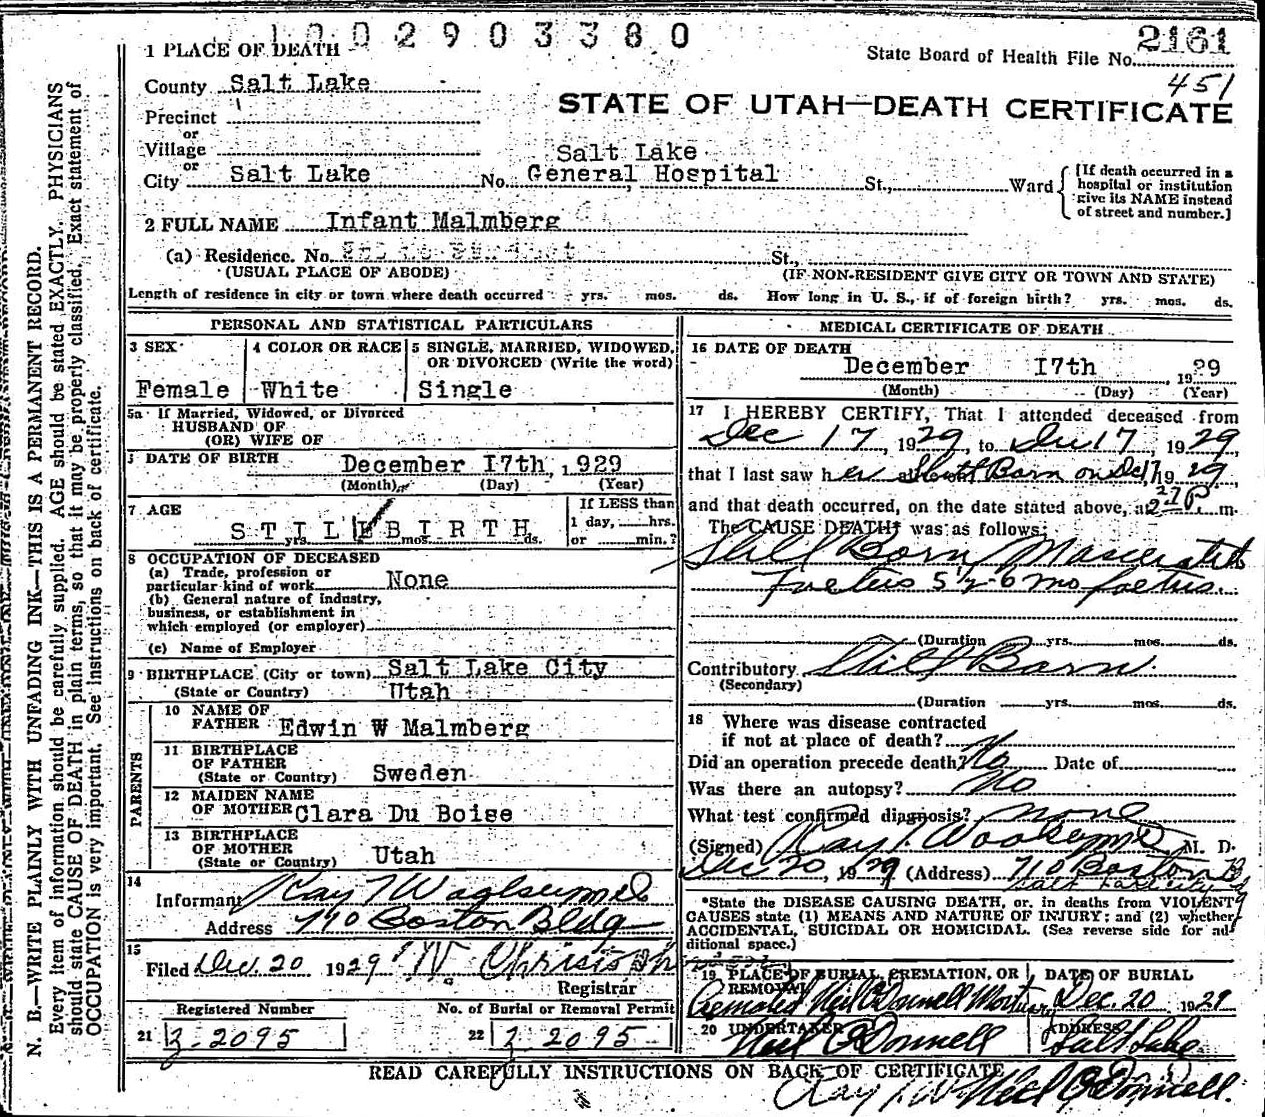 1 0 0 2 9 0 3 3 8 0
2161
State Board of Health File No.
451
1 PLACE OF DEATH
County Salt Lake
STATE OF UTAH—DEATH CERTIFICATE
Precinct
or
Village
or
City Salt Lake No. Salt Lake General Hospital St., Ward
[If death occurred in a hospital or institution give its NAME instead of street and number.]
2 FULL NAME Infant Malmberg
(a) Residence. No. St.,
(USUAL PLACE OF ABODE) (IF NON-RESIDENT GIVE CITY OR TOWN AND STATE)
Length of residence in city or town where death occurred yrs. mos. ds. How long in U. S., if of foreign birth? yrs. mos. ds.
PERSONAL AND STATISTICAL PARTICULARS
3 SEX
Female
4 COLOR OR RACE
White
5 SINGLE, MARRIED, WIDOWED, OR DIVORCED (Write the word)
Single
5a If Married, Widowed, or Divorced
HUSBAND OF
(OR) WIFE OF
DATE OF BIRTH
December 17th, 1929
(Month) (Day) (Year)
7 AGE
STILLBIRTH
yrs. mos. ds.
If LESS than
1 day, hrs.
or min.?
8 OCCUPATION OF DECEASED
(a) Trade, profession or
particular kind of work None
(b) General nature of industry,
business, or establishment in
which employed (or employer)
(c) Name of Employer
9 BIRTHPLACE (City or town) Salt Lake City
(State or Country) Utah
PARENTS
10 NAME OF
FATHER Edwin W Malmberg
11 BIRTHPLACE
OF FATHER
(State or Country) Sweden
12 MAIDEN NAME
OF MOTHER Clara Du Boise
13 BIRTHPLACE
OF MOTHER
(State or Country) Utah
14
Informant Ray T
Address 710 Boston Bldg
15
Filed Dec. 20 1929
Registrar
Registered Number
21 2095
No. of Burial or Removal Permit
22 2095
MEDICAL CERTIFICATE OF DEATH
16 DATE OF DEATH
December 17th, 1929
(Month) (Day) (Year)
17 I HEREBY CERTIFY, That I attended deceased from
Dec 17, 1929, to Dec 17, 1929
that I last saw her Still Born on Dec 17 1929,
and that death occurred, on the date stated above, at 2 27 P. m.
The CAUSE DEATH* was as follows:
Still Born Mascerated
Foetus 5½-6 mo foetus.
(Duration yrs. mos. ds.
Contributory Still Born
(Secondary)
(Duration yrs. mos. ds.
18 Where was disease contracted
if not at place of death?
Did an operation precede death? No Date of
Was there an autopsy? No
What test confirmed diagnosis? none
(Signed) Ray T. M. D.
Dec 20, 1929 (Address) 710 Boston B
Salt Lake City
*State the DISEASE CAUSING DEATH, or, in deaths from VIOLENT
CAUSES state (1) MEANS AND NATURE OF INJURY; and (2) whether
ACCIDENTAL, SUICIDAL OR HOMICIDAL. (See reverse side for ad-
ditional space.)
19 PLACE OF BURIAL, CREMATION, OR REMOVAL
Cremated Neil O'Donnell Mortuary
DATE OF BURIAL
Dec. 20 1929
20 UNDERTAKER
Neil O'Donnell
ADDRESS
Salt Lake
READ CAREFULLY INSTRUCTIONS ON BACK OF CERTIFICATE
Ray T. W Neil O'Donnell.
N. B.—WRITE PLAINLY WITH UNFADING INK—THIS IS A PERMANENT RECORD.
Every item of information should be carefully supplied. AGE should be stated EXACTLY. PHYSICIANS
should state CAUSE OF DEATH in plain terms, so that it may be properly classified. Exact statement of
OCCUPATION is very important. See instructions on back of certificate.